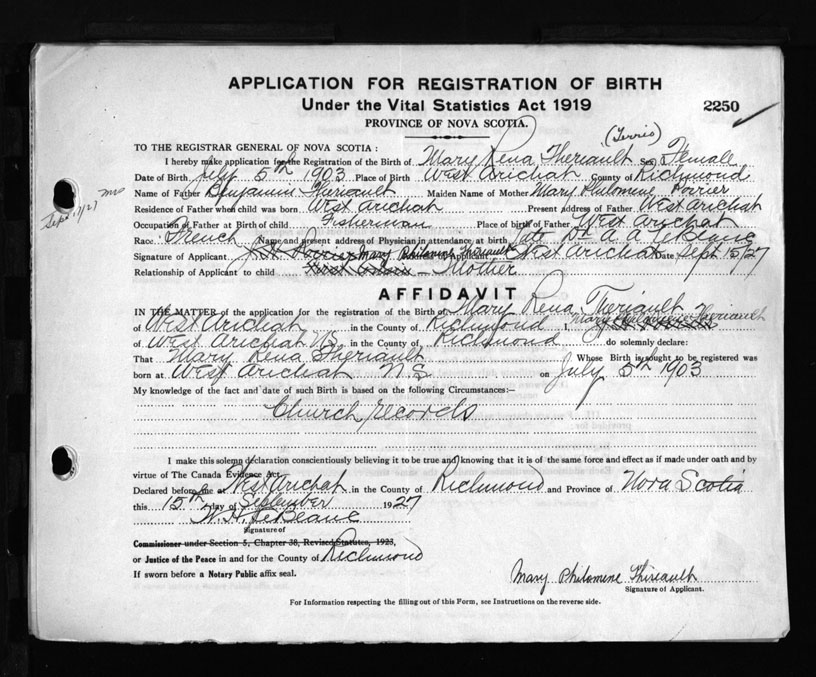 APPLICATION FOR REGISTRATION OF BIRTH
Under the Vital Statistics Act 1919
2250
PROVINCE OF NOVA SCOTIA.
(Terrio)
TO THE REGISTRAR GENERAL OF NOVA SCOTIA :
I hereby make application for the Registration of the Birth of Mary Rena Theriault Sex Female
Date of Birth July 5th 1903 Place of Birth West Arichat County of Richmond
Name of Father Benjamin Theriault Maiden Name of Mother Mary Philomene Poirier
Sept 17/27
Residence of Father when child was born West Arichat Present address of Father West Arichat
Occupation of Father at Birth of child Fisherman Place of birth of Father West Arichat
Race French Name and present address of Physician in attendance at birth Dr A A
Signature of Applicant Mary Philomene Theriault Applicant West Arichat Date Sept 15/27
Relationship of Applicant to child Mother
AFFIDAVIT
IN THE MATTER of the application for the registration of the Birth of Mary Rena Theriault
of West Arichat in the County of Richmond I, Mary Philomene Theriault
of West Arichat N.S. in the County of Richmond do solemnly declare:
That Mary Rena Theriault Whose Birth is sought to be registered was
born at West Arichat N S on July 5th 1903
My knowledge of the fact and date of such Birth is based on the following Circumstances:—
Church records
I make this solemn declaration conscientiously believing it to be true and knowing that it is of the same force and effect as if made under oath and by
virtue of The Canada Evidence Act.
Declared before me at West Arichat in the County of Richmond and Province of Nova Scotia
this 15th day of September 1927
W. H. LeBlanc
Signature of
Commissioner under Section 5, Chapter 38, Revised Statutes, 1923,
or Justice of the Peace in and for the County of Richmond
If sworn before a Notary Public affix seal.
Mary Philomene Thireault
Signature of Applicant.
For Information respecting the filling out of this Form, see Instructions on the reverse side.